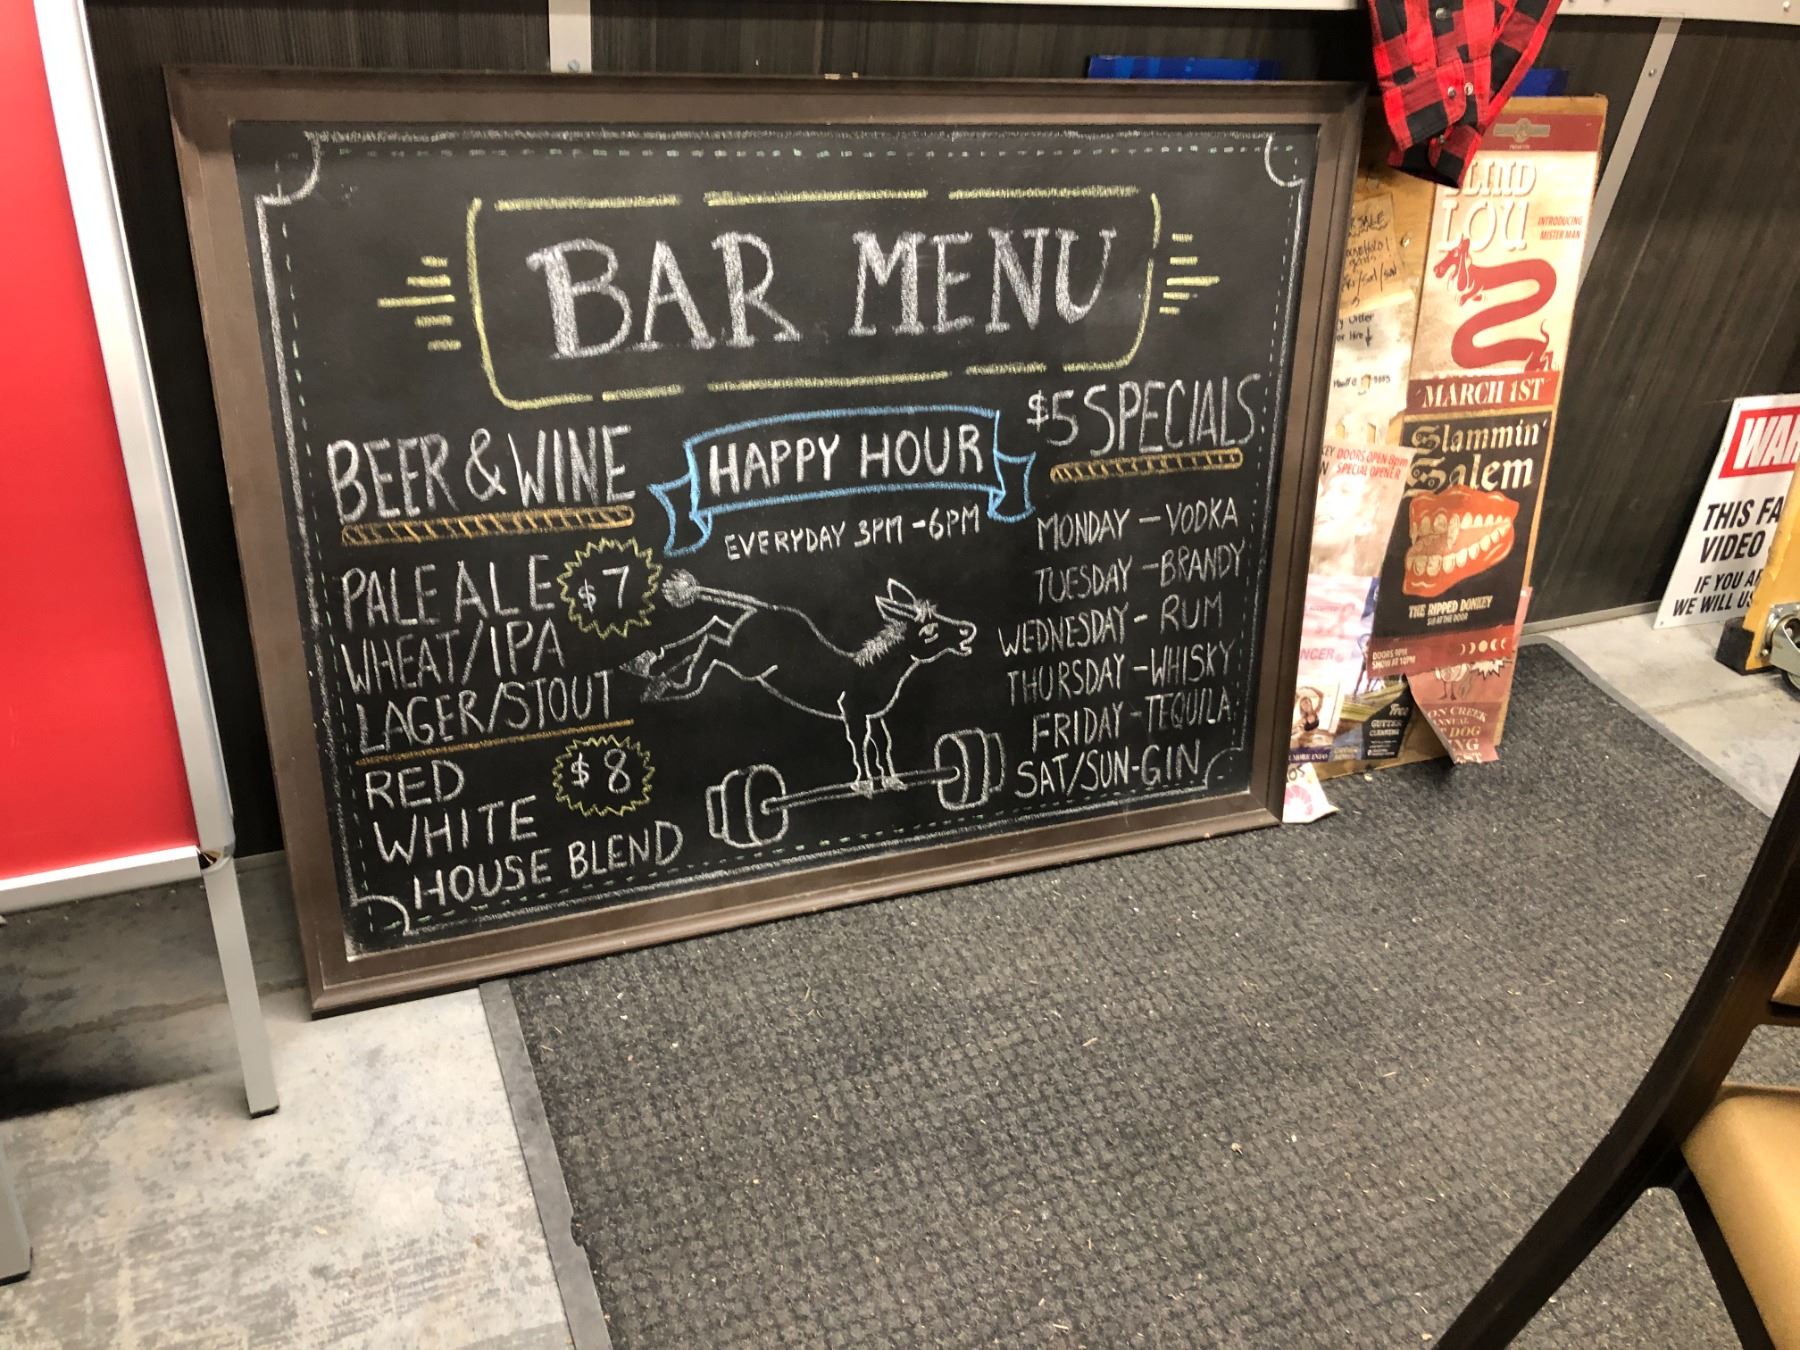 BAR MENU
BEER & WINE
PALE ALE $7
WHEAT/IPA
LAGER/STOUT
RED
WHITE $8
HOUSE BLEND
HAPPY HOUR
EVERYDAY 3PM-6PM
$5 SPECIALS
MONDAY - VODKA
TUESDAY - BRANDY
WEDNESDAY - RUM
THURSDAY - WHISKY
FRIDAY - TEQUILA
SAT/SUN - GIN
SALE
LOU
INTRODUCING
MISTER MAN
MARCH 1ST
DOORS OPEN 8pm
SPECIAL OPENER
Slammin'
Salem
THE RIPPED DONKEY
DOORS 9PM
SHOW AT 10PM
ON CREEK
DOG
Tree
GUTTER
CLEANING
WAR
THIS FA
VIDEO
IF YOU A
WE WILL